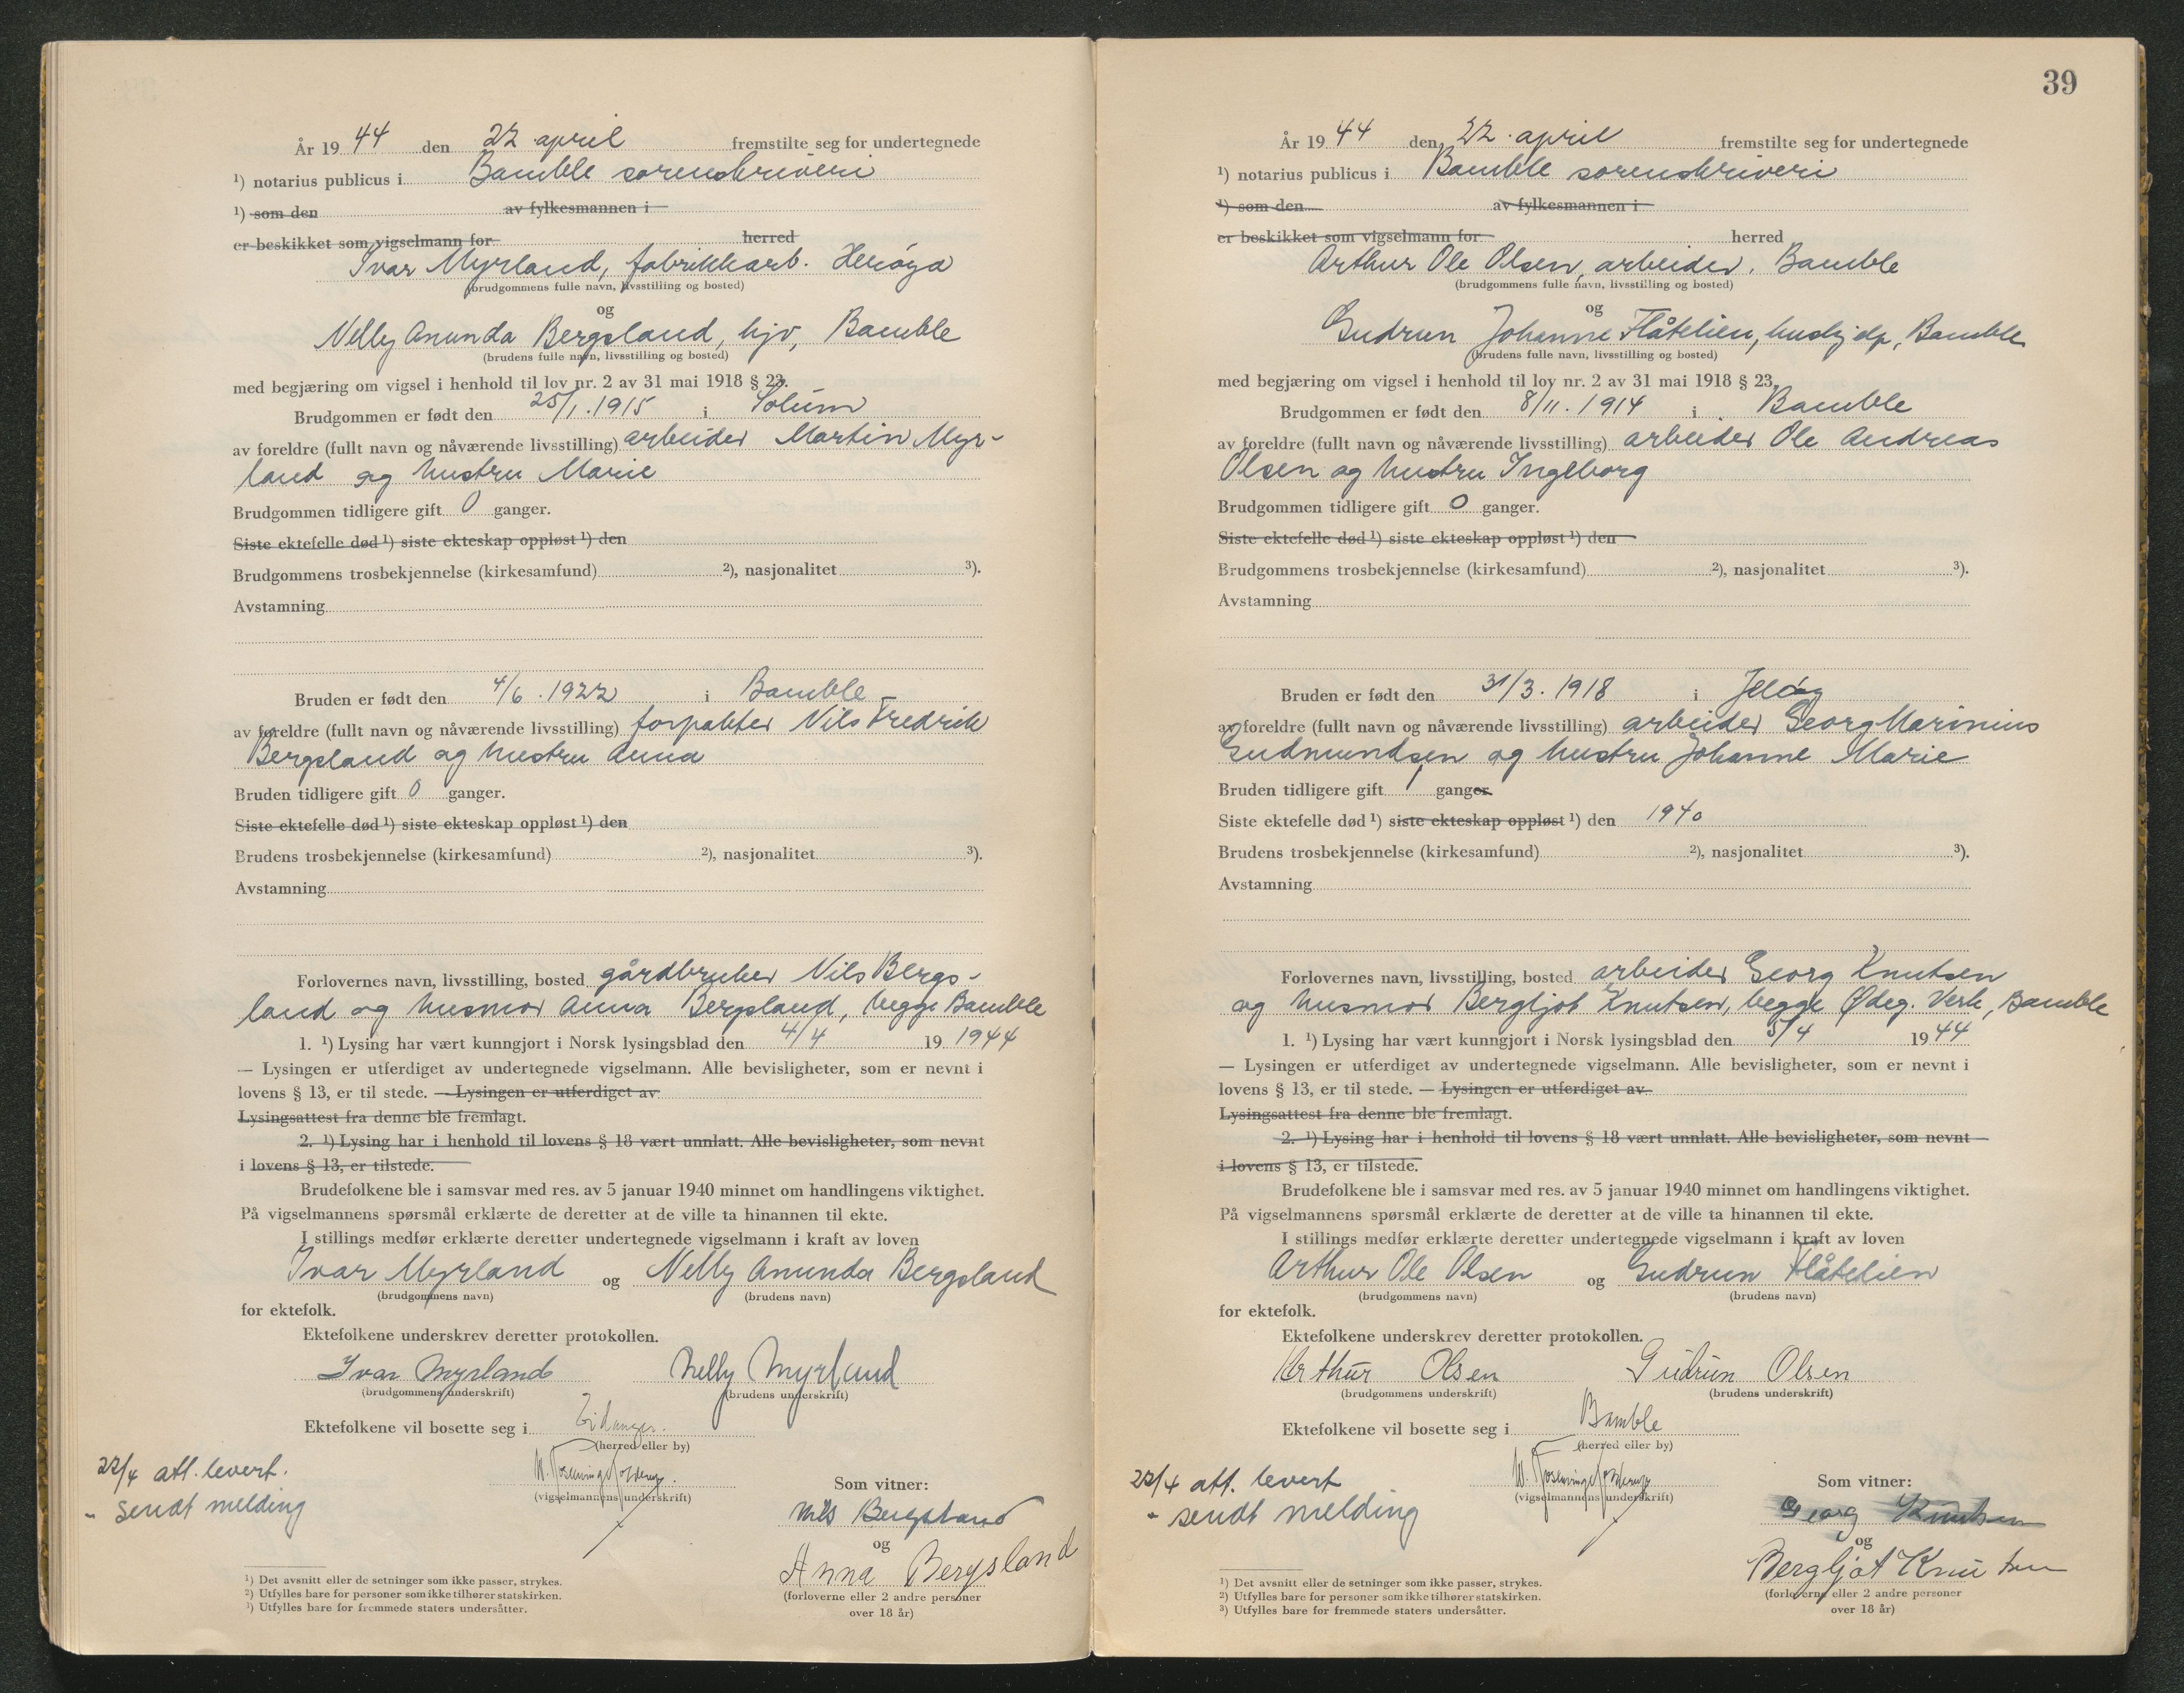 År 19 44 den 22 april fremstilte seg for undertegnede
¹) notarius publicus i Bamble sorenskriveri
¹) som den av fylkesmannen i
er beskikket som vigselmann for herred
Ivar Myrland, fabrikkarb. Herøya
(brudgommens fulle navn, livsstilling og bosted)
og
Nelly Anunda Bergsland, hjv, Bamble
(brudens fulle navn, livsstilling og bosted)
med begjæring om vigsel i henhold til lov nr. 2 av 31 mai 1918 § 23.
Brudgommen er født den 25/1. 1915 i Solum
av foreldre (fullt navn og nåværende livsstilling) arbeider Martin Myr-
land og hustru Marie
Brudgommen tidligere gift 0 ganger.
Siste ektefelle død ¹) siste ekteskap oppløst ¹) den
Brudgommens trosbekjennelse (kirkesamfund) ²), nasjonalitet ³).
Avstamning
Bruden er født den 4/6. 1922 i Bamble
av foreldre (fullt navn og nåværende livsstilling) forpakter Nils Fredrik
Bergsland og hustru Anna
Bruden tidligere gift 0 ganger.
Siste ektefelle død ¹) siste ekteskap oppløst ¹) den
Brudens trosbekjennelse (kirkesamfund) ²), nasjonalitet ³).
Avstamning
Forlovernes navn, livsstilling, bosted gårdbruker Nils Bergs-
land og husmor Anna Bergsland, begge Bamble
1. ¹) Lysing har vært kunngjort i Norsk lysingsblad den 4/4 19 1944
— Lysingen er utferdiget av undertegnede vigselmann. Alle bevisligheter, som er nevnt i
lovens § 13, er til stede. — Lysingen er utferdiget av
Lysingsattest fra denne ble fremlagt.
2. ¹) Lysing har i henhold til lovens § 18 vært unnlatt. Alle bevisligheter, som nevnt
i lovens § 13, er tilstede.
Brudefolkene ble i samsvar med res. av 5 januar 1940 minnet om handlingens viktighet.
På vigselmannens spørsmål erklærte de deretter at de ville ta hinannen til ekte.
I stillings medfør erklærte deretter undertegnede vigselmann i kraft av loven
Ivar Myrland og Nelly Anunda Bergsland
(brudgommens navn) (brudens navn)
for ektefolk.
Ektefolkene underskrev deretter protokollen.
Ivar Myrland Nelly Myrland
(brudgommens underskrift) (brudens underskrift)
Ektefolkene vil bosette seg i Eidanger.
(herred eller by)
22/4 att. levert.
" sendt melding
(vigselmannens underskrift)
Som vitner:
Nils Bergsland
og
Anna Bergsland
(forloverne eller 2 andre personer
over 18 år)
¹) Det avsnitt eller de setninger som ikke passer, strykes.
²) Utfylles bare for personer som ikke tilhører statskirken.
³) Utfylles bare for fremmede staters undersåtter.
39
År 19 44 den 22. april fremstilte seg for undertegnede
¹) notarius publicus i Bamble sorenskriveri
¹) som den av fylkesmannen i
er beskikket som vigselmann for herred
Arthur Ole Olsen, arbeider. Bamble
(brudgommens fulle navn, livsstilling og bosted)
og
Gudrun Johanne Flåtelien, hushjelp, Bamble
(brudens fulle navn, livsstilling og bosted)
med begjæring om vigsel i henhold til lov nr. 2 av 31 mai 1918 § 23.
Brudgommen er født den 8/11. 1914 i Bamble
av foreldre (fullt navn og nåværende livsstilling) arbeider Ole Andreas
Olsen og hustru Ingeborg
Brudgommen tidligere gift 0 ganger.
Siste ektefelle død ¹) siste ekteskap oppløst ¹) den
Brudgommens trosbekjennelse (kirkesamfund) ²), nasjonalitet ³).
Avstamning
Bruden er født den 31/3. 1918 i Jeløy
av foreldre (fullt navn og nåværende livsstilling) arbeider Georg Marinius
Gudmundsen og hustru Johanne Marie
Bruden tidligere gift 1 ganger.
Siste ektefelle død ¹) siste ekteskap oppløst ¹) den 1940
Brudens trosbekjennelse (kirkesamfund) ²), nasjonalitet ³).
Avstamning
Forlovernes navn, livsstilling, bosted arbeider Georg Knutsen
og husmor Bergljot Knutsen, begge Ødeg. Verk, Bamble
1. ¹) Lysing har vært kunngjort i Norsk lysingsblad den 5/4 19 44
— Lysingen er utferdiget av undertegnede vigselmann. Alle bevisligheter, som er nevnt i
lovens § 13, er til stede. — Lysingen er utferdiget av
Lysingsattest fra denne ble fremlagt.
2. ¹) Lysing har i henhold til lovens § 18 vært unnlatt. Alle bevisligheter, som nevnt
i lovens § 13, er tilstede.
Brudefolkene ble i samsvar med res. av 5 januar 1940 minnet om handlingens viktighet.
På vigselmannens spørsmål erklærte de deretter at de ville ta hinannen til ekte.
I stillings medfør erklærte deretter undertegnede vigselmann i kraft av loven
Arthur Ole Olsen og Gudrun Flåtelien
(brudgommens navn) (brudens navn)
for ektefolk.
Ektefolkene underskrev deretter protokollen.
Arthur Olsen Gudrun Olsen
(brudgommens underskrift) (brudens underskrift)
Ektefolkene vil bosette seg i Bamble
(herred eller by)
22/4 att. levert
" sendt melding
(vigselmannens underskrift)
Som vitner:
Georg Knutsen
og
Bergljot Knutsen
(forloverne eller 2 andre personer
over 18 år)
¹) Det avsnitt eller de setninger som ikke passer, strykes.
²) Utfylles bare for personer som ikke tilhører statskirken.
³) Utfylles bare for fremmede staters undersåtter.